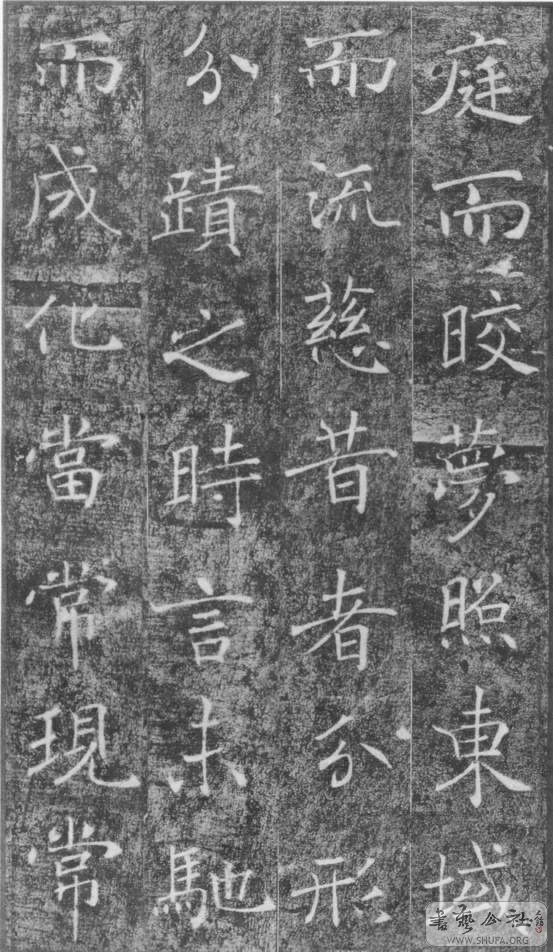 庭而皎夢照東域
而流慈昔者分形
分蹟之時言未馳
而成化當常現常
書藝公社
WWW.SHUFA.ORG